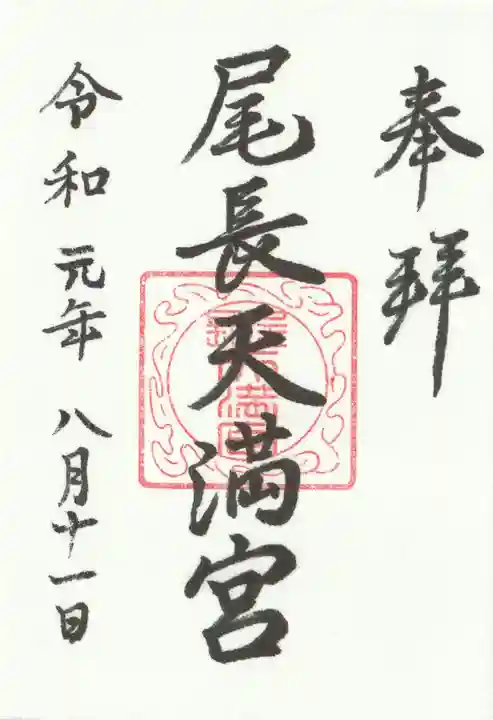 奉拜
尾長天満宮
令和元年八月十一日